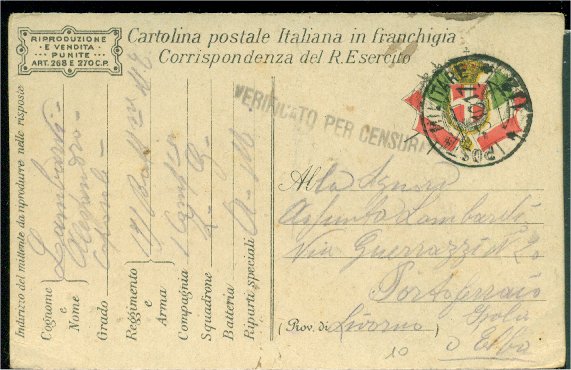 RIPRODUZIONE
E VENDITA
PUNITE
ART. 268 E 270 C.P.
Cartolina postale Italiana in franchigia
Corrispondenza del R. Esercito
VERIFICATO PER CENSURA
POSTA MILITARE
Indirizzo del mittente da riprodurre nelle risposte
Cognome e Nome Lombardi Alessandro
Grado Caporale
Reggimento e Arma
Compagnia
Squadrone
Batteria
Riparti speciali
Alla Signora
Assunta Lombardi
Via Guerrazzi N
Portoferraio
(Prov. di Livorno) Isola
d Elba
10